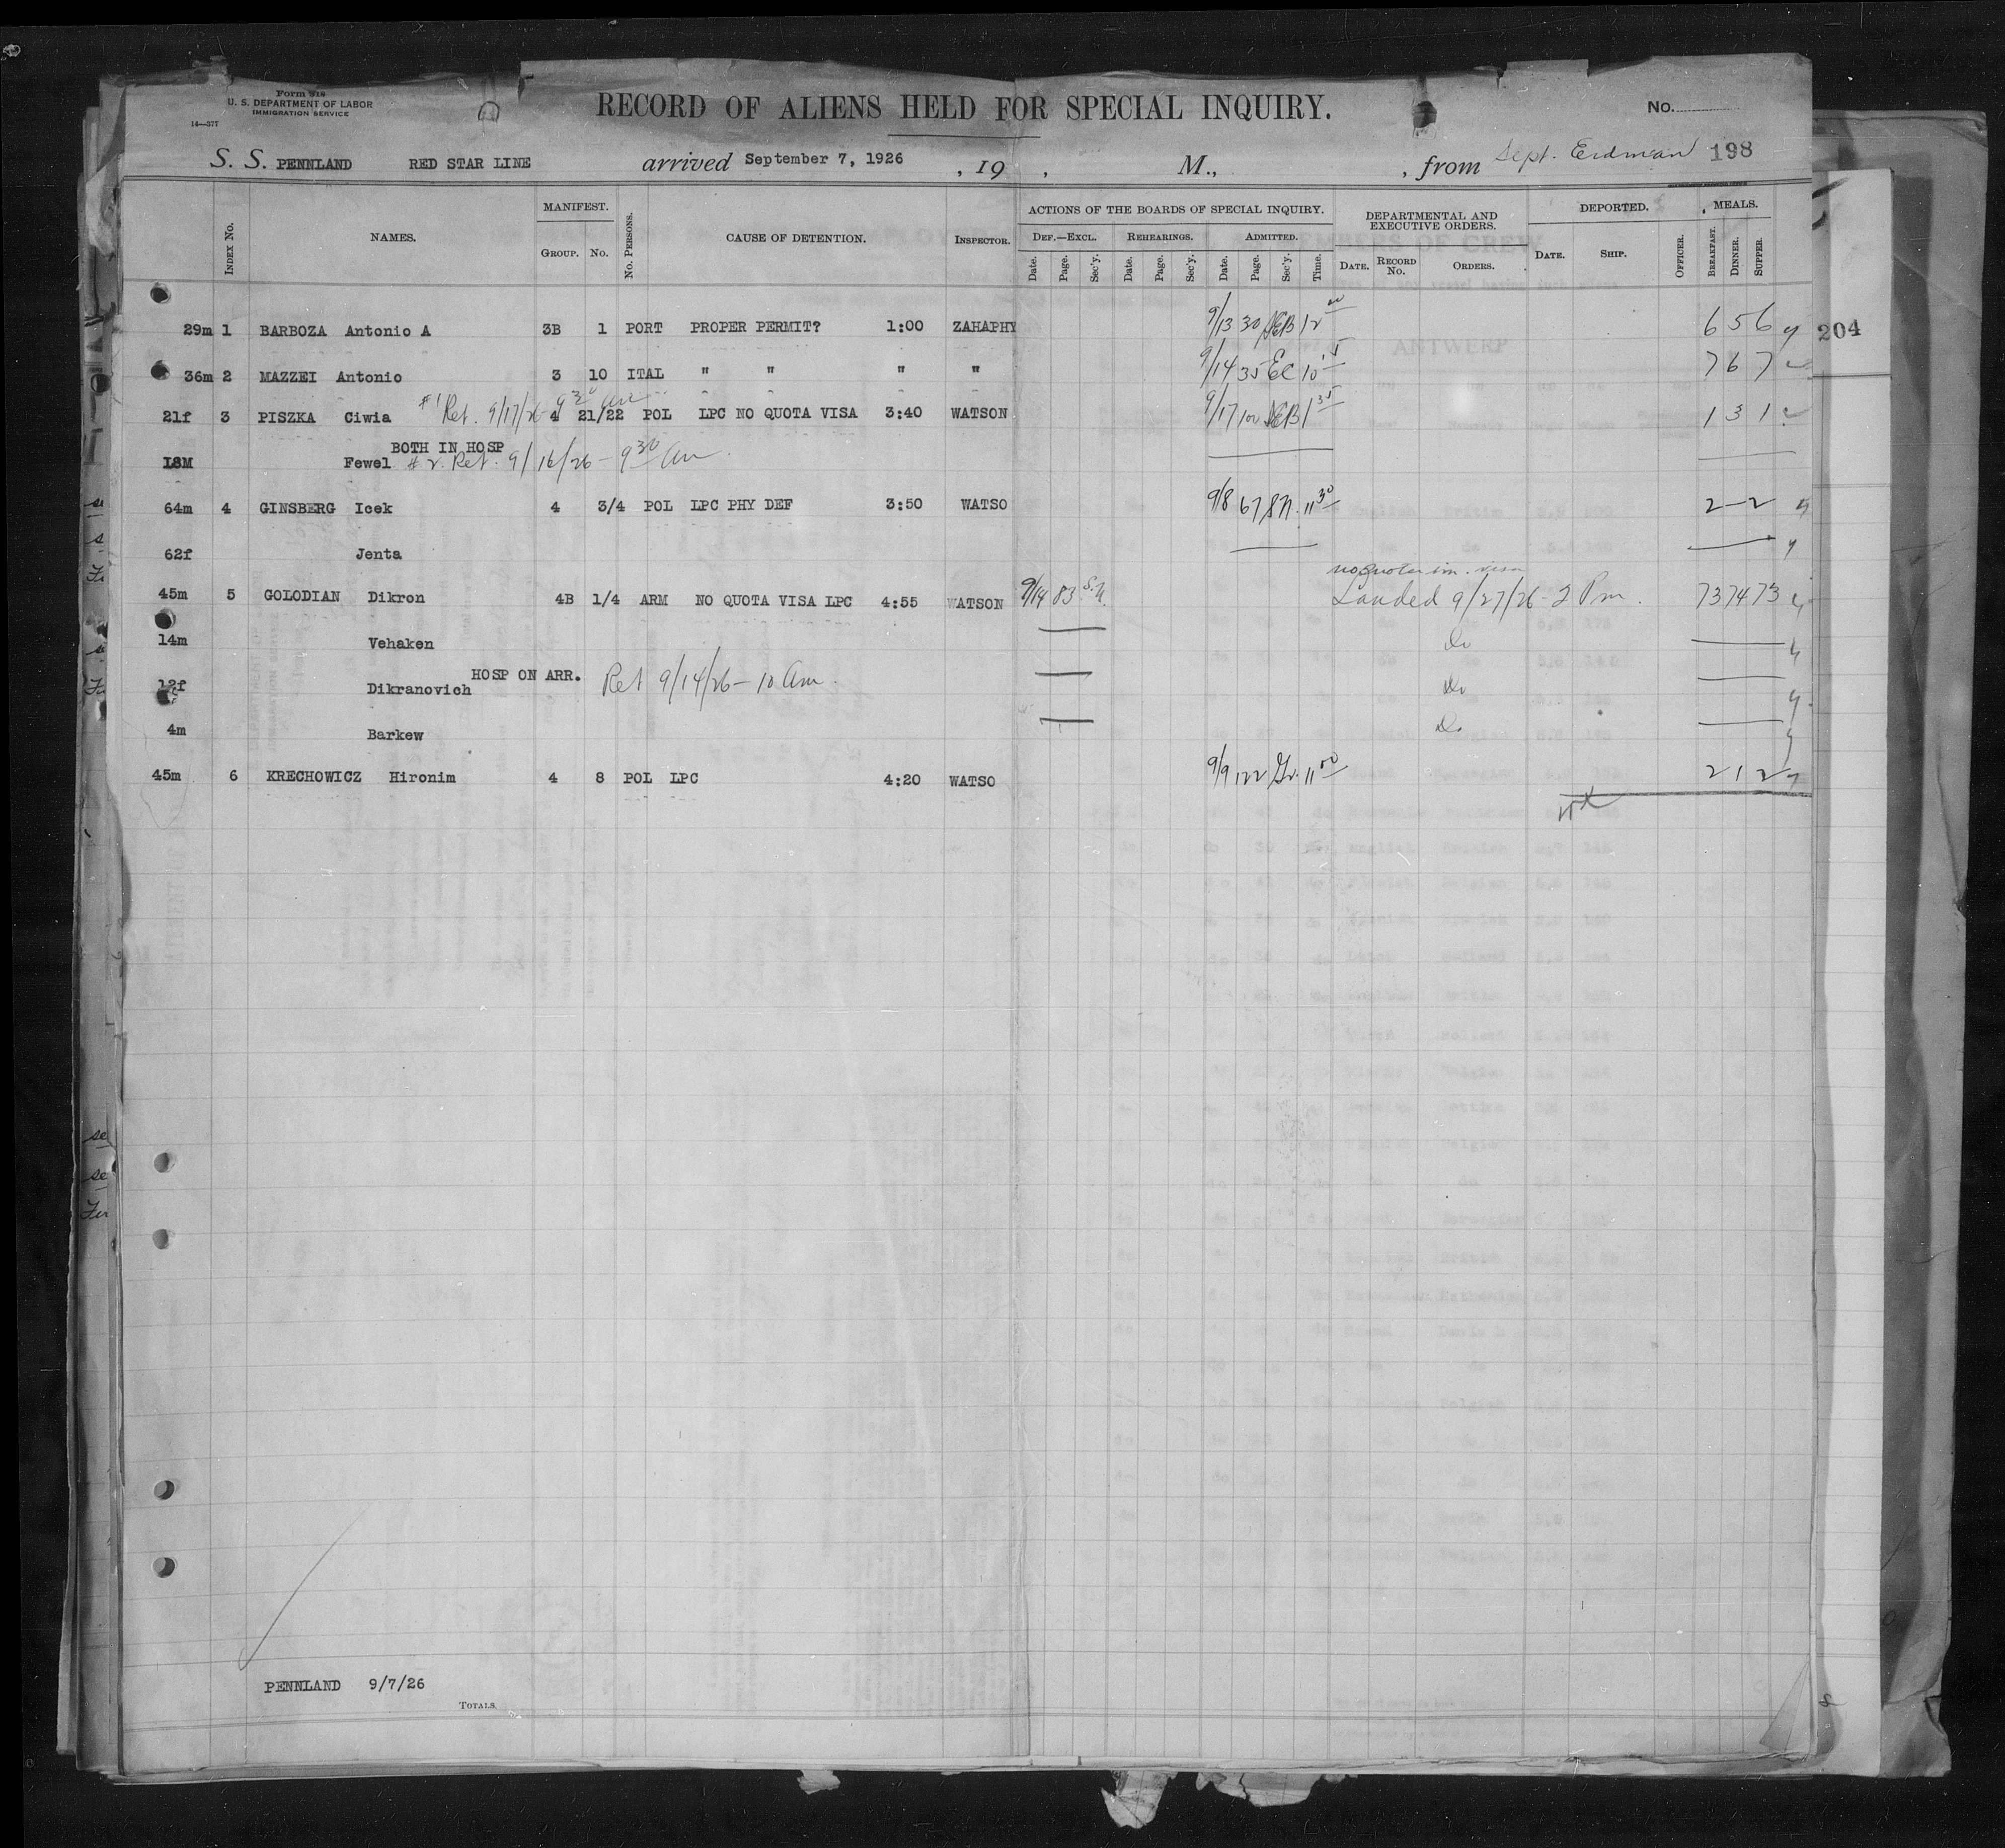 Form 518
U. S. DEPARTMENT OF LABOR
IMMIGRATION SERVICE
14—377
RECORD OF ALIENS HELD FOR SPECIAL INQUIRY.
No.
S. S. PENNLAND RED STAR LINE arrived September 7, 1926 , 19 , M., , from Sept. Erdman 198
INDEX No. NAMES. MANIFEST. GROUP. No. No. PERSONS. CAUSE OF DETENTION. INSPECTOR. ACTIONS OF THE BOARDS OF SPECIAL INQUIRY. DEPARTMENTAL AND EXECUTIVE ORDERS. DEPORTED. MEALS.
DEF.—EXCL. REHEARINGS. ADMITTED.
Date. Page. Sec'y. Date. Page. Sec'y. Date. Page. Sec'y. Time. DATE. RECORD No. ORDERS. DATE. SHIP. OFFICER. BREAKFAST. DINNER. SUPPER.
29m 1 BARBOZA Antonio A 3B 1 PORT PROPER PERMIT? 1:00 ZAHAPHY 9/13 30 12 00 6 5 6
204
36m 2 MAZZEI Antonio 3 10 ITAL " " " " 9/14 35 EC 10 15 7 6 7
#1 Ret. 9/17/26 9 30 am
21f 3 PISZKA Ciwia 4 21/22 POL LPC NO QUOTA VISA 3:40 WATSON 9/17 100 1 35 1 3 1
BOTH IN HOSP
18M Fewel #2. Ret. 9/16/26 - 9 30 am.
64m 4 GINSBERG Icek 4 3/4 POL LPC PHY DEF 3:50 WATSO 9/8 67 SN. 11 30 2 - 2
62f Jenta
no quota im. visa
45m 5 GOLODIAN Dikron 4B 1/4 ARM NO QUOTA VISA LPC 4:55 WATSON 9/14 83 S.N. Landed 9/27/26 - 2 Pm. 73 74 73
14m Vehaken Do
HOSP ON ARR. Ret 9/14/26 - 10 am.
12f Dikranovich Do
4m Barkew Do
45m 6 KRECHOWICZ Hironim 4 8 POL LPC 4:20 WATSO 9/9 122 Gr. 11 00 2 1 2
PENNLAND 9/7/26
TOTALS.